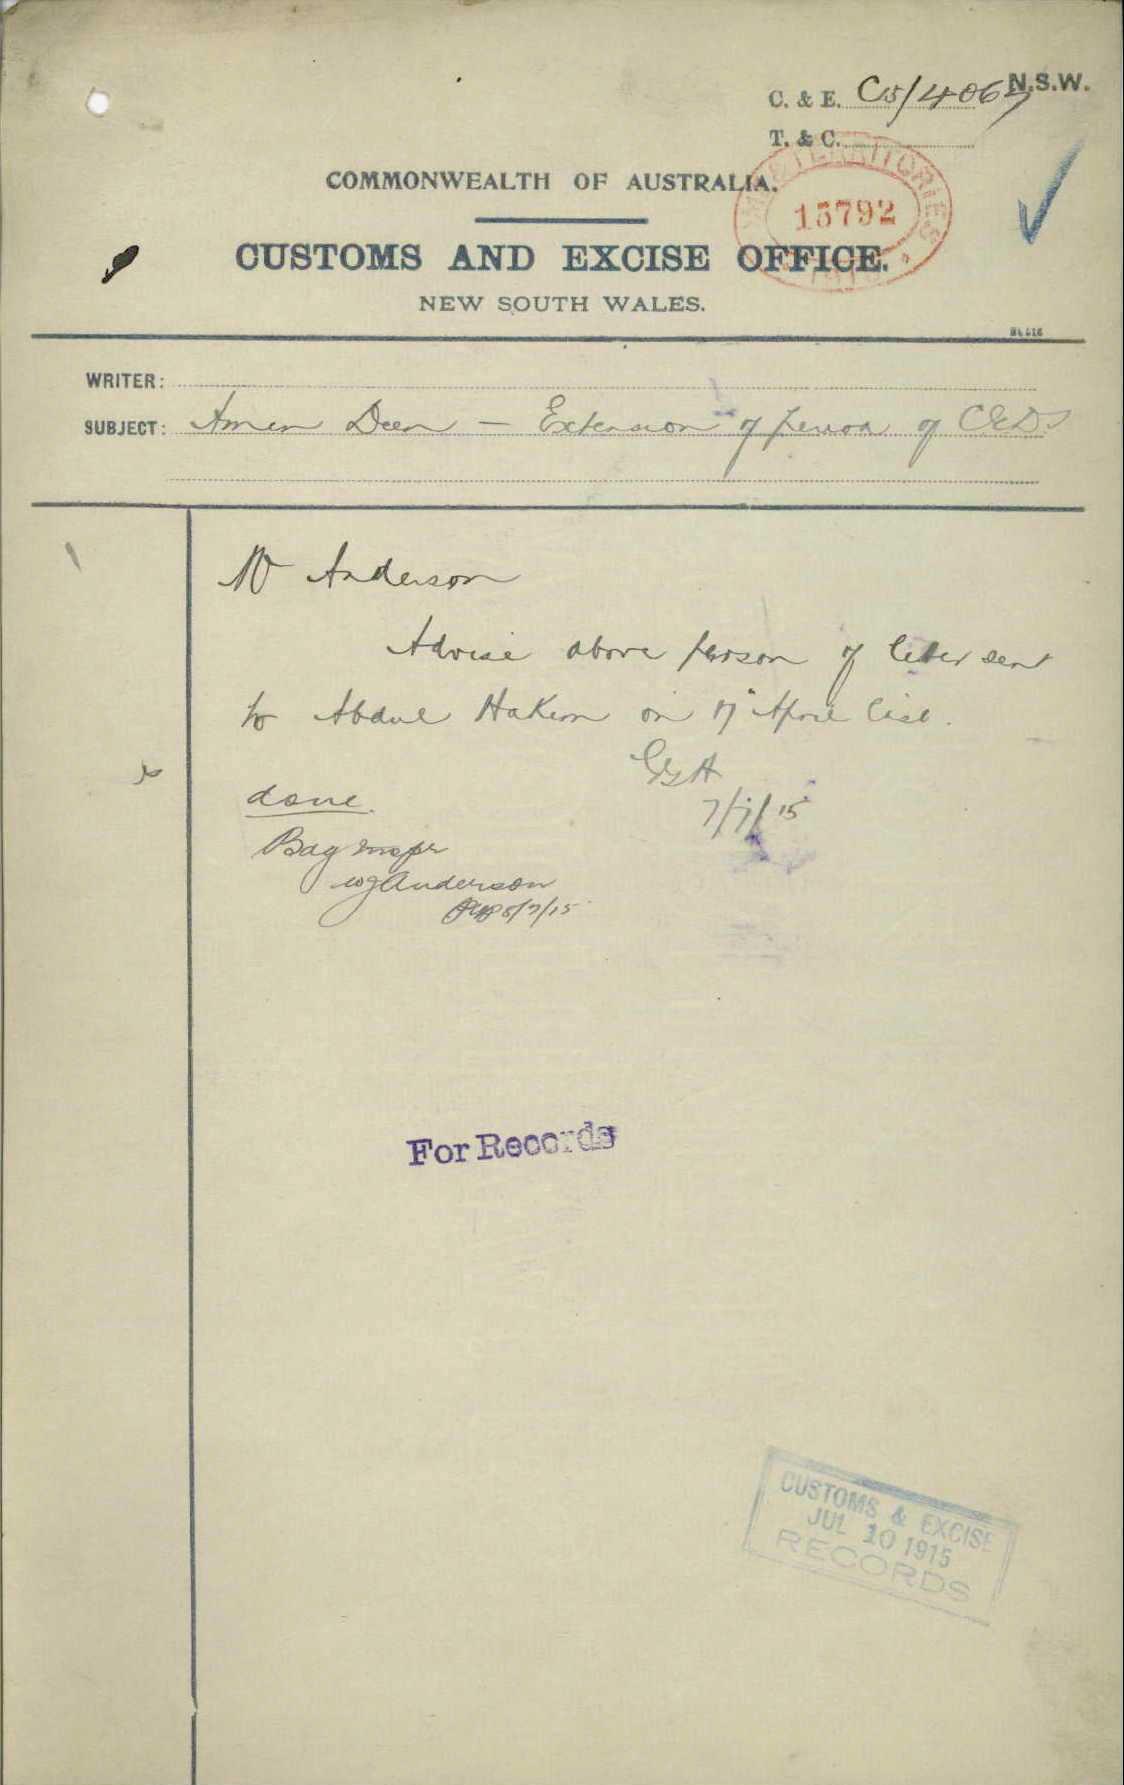 N.S.W.
C. & E. C15/4067
T. & C.
COMMONWEALTH OF AUSTRALIA.
TERRITORIES
15792
CUSTOMS AND EXCISE OFFICE.
NEW SOUTH WALES.
WRITER:
SUBJECT: Amen Deen — Extension of period of CEDT
Mr Anderson
Advise above person of letter sent
to Abdul Hakim on 17th April last.
7/7/15
done.
WJ Anderson
8/7/15
For Records
CUSTOMS & EXCISE
JUL 10 1915
RECORDS